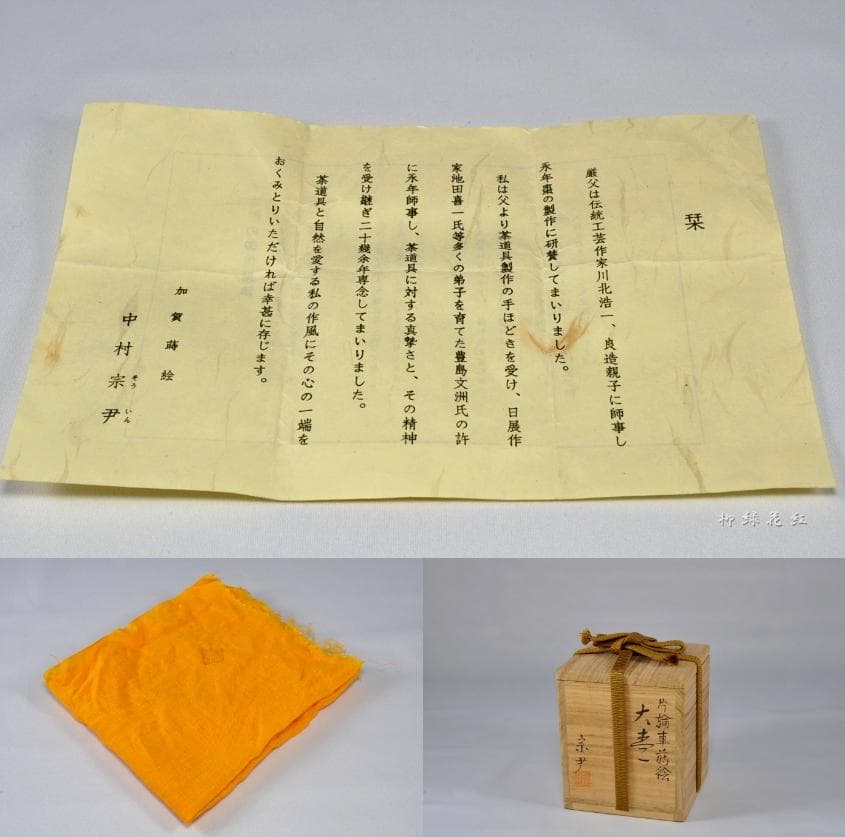 栞
厳父は伝統工芸作家川北浩一、良造親子に師事し
永年棗の製作に研賛してまいりました。
私は父より茶道具製作の手ほどきを受け、日展作
家池田喜一氏等多くの弟子を育てた豊島文洲氏の許
に永年師事し、茶道具に対する真摯さと、その精神
を受け継ぎ二十幾余年専念してまいりました。
茶道具と自然を愛する私の作風にその心の一端を
おくみとりいただければ幸甚に存じます。
加賀蒔絵
中村宗尹
そういん
柳緑花紅
片輪車蒔絵
大棗
宗尹